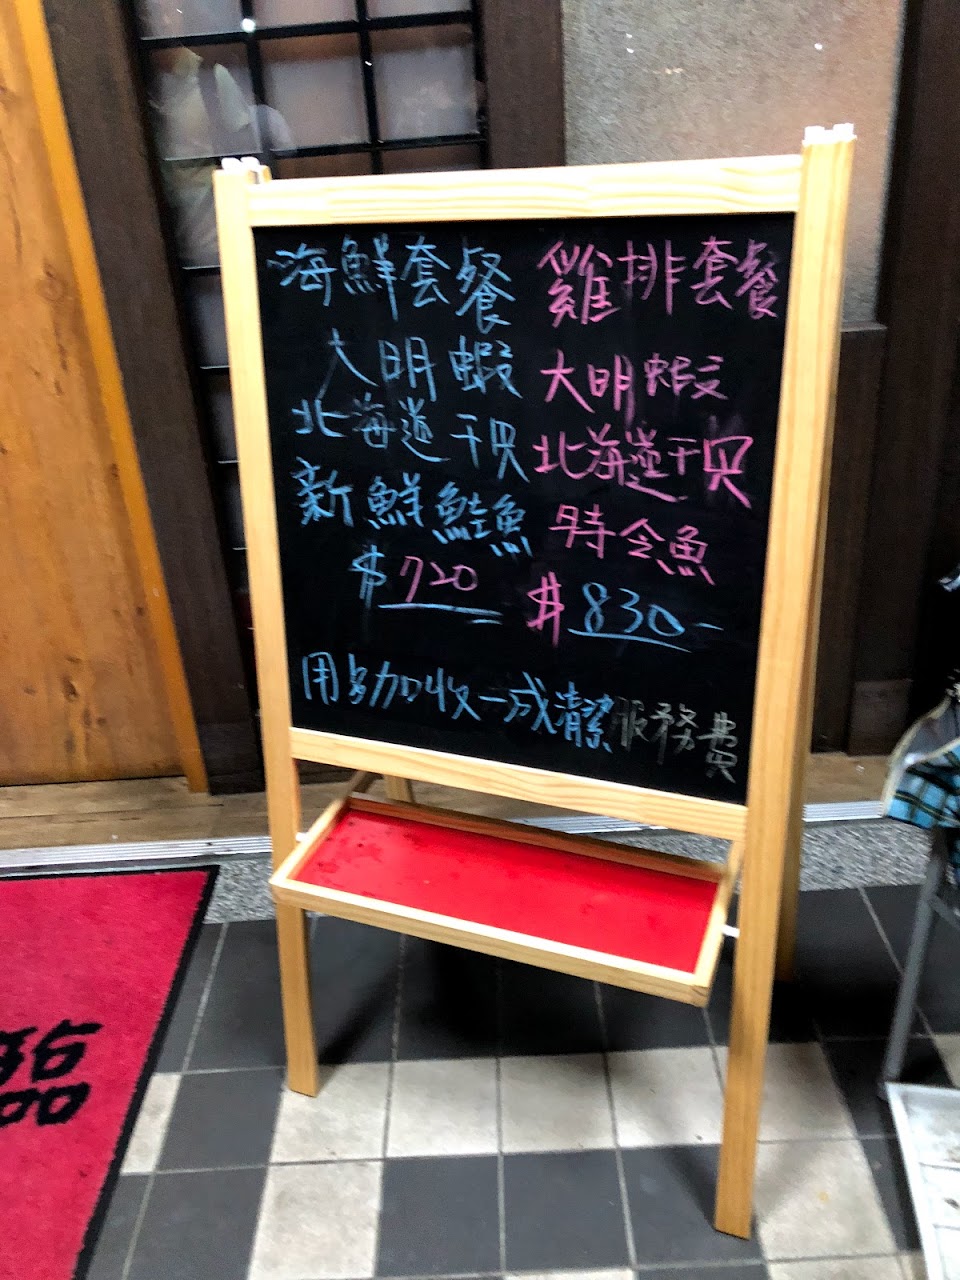 海鮮套餐
大明蝦
北海道干贝
新鮮鮭魚
$720
雞排套餐
大明蝦
北海道干贝
時令魚
$830-
用多加收一成清潔服務費